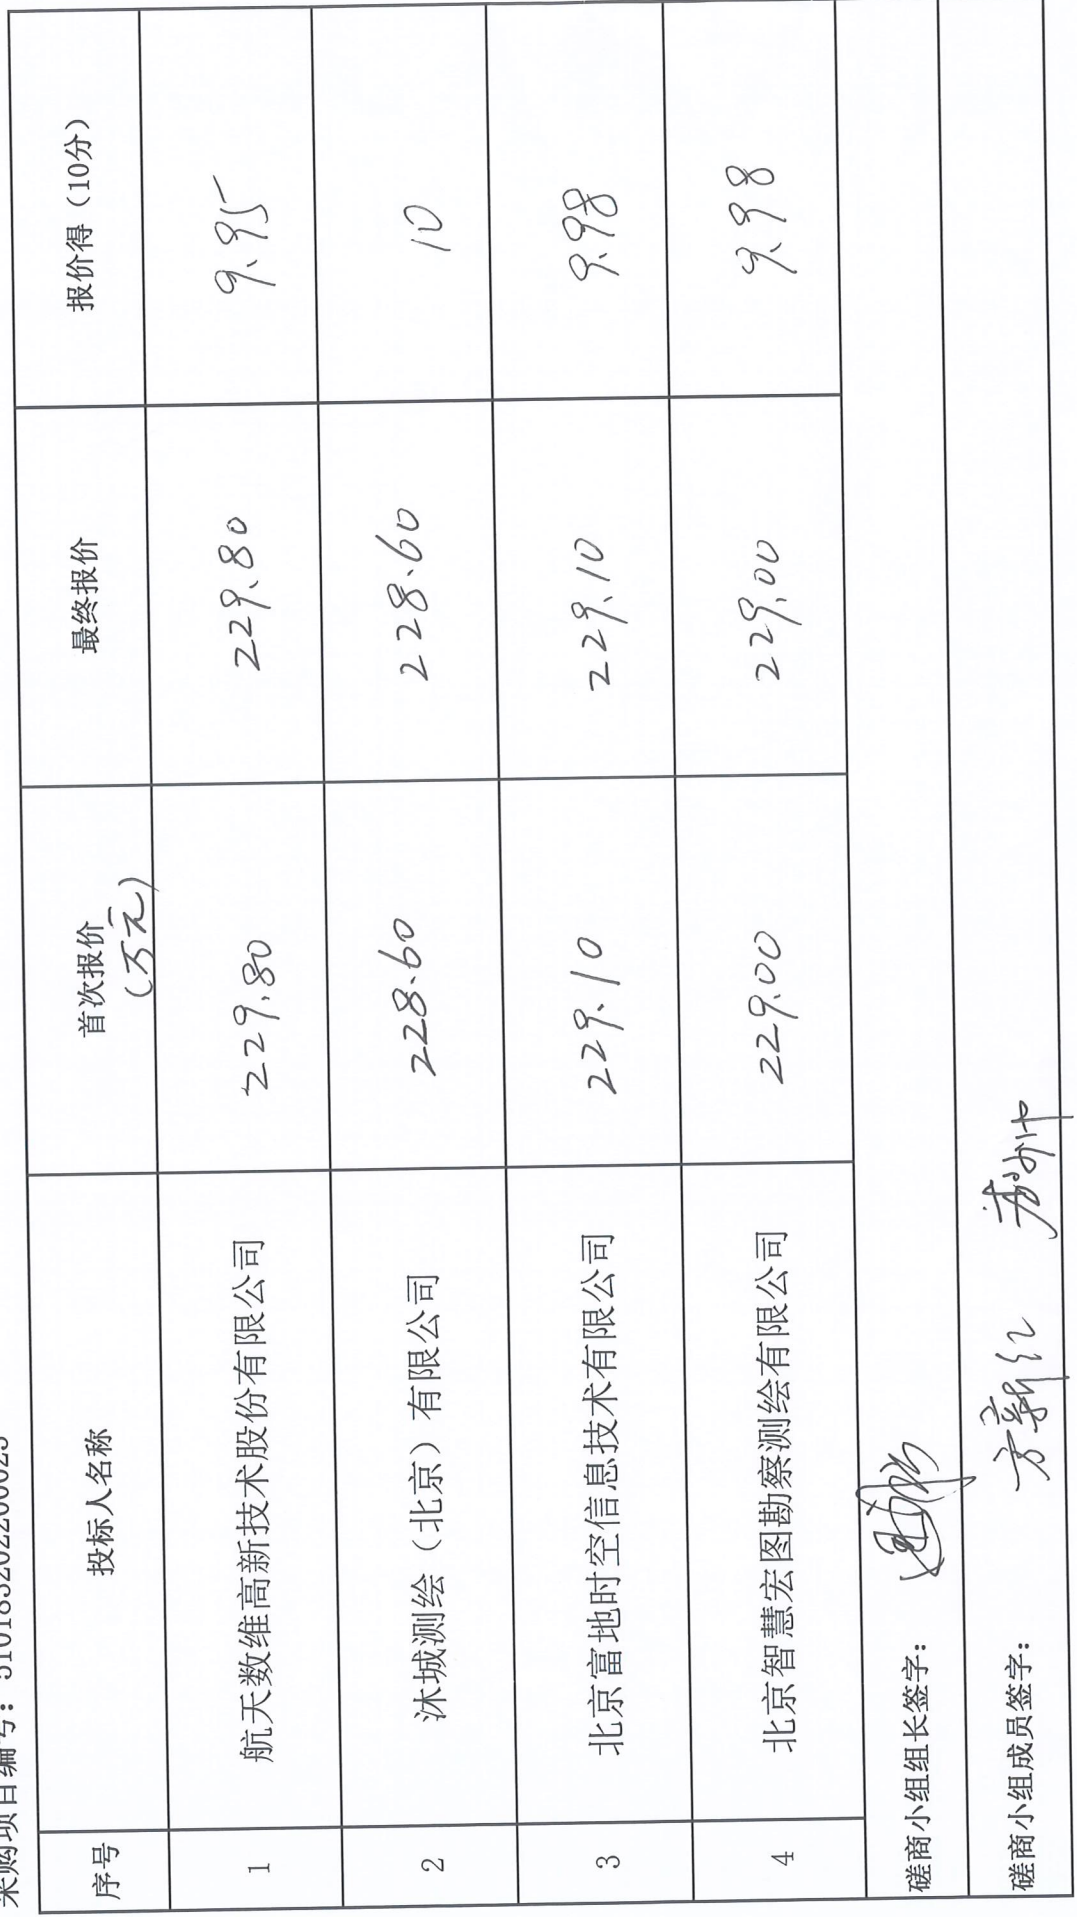 采购项目编号：5101832022000025
序号 投标人名称 首次报价（万元） 最终报价 报价得（10分）
1 航天数维高新技术股份有限公司 229.80 229.80 9.95
2 沐城测绘（北京）有限公司 228.60 228.60 10
3 北京富地时空信息技术有限公司 229.10 229.10 9.98
4 北京智慧宏图勘察测绘有限公司 229.00 229.00 9.98
磋商小组组长签字：
磋商小组成员签字：方新红